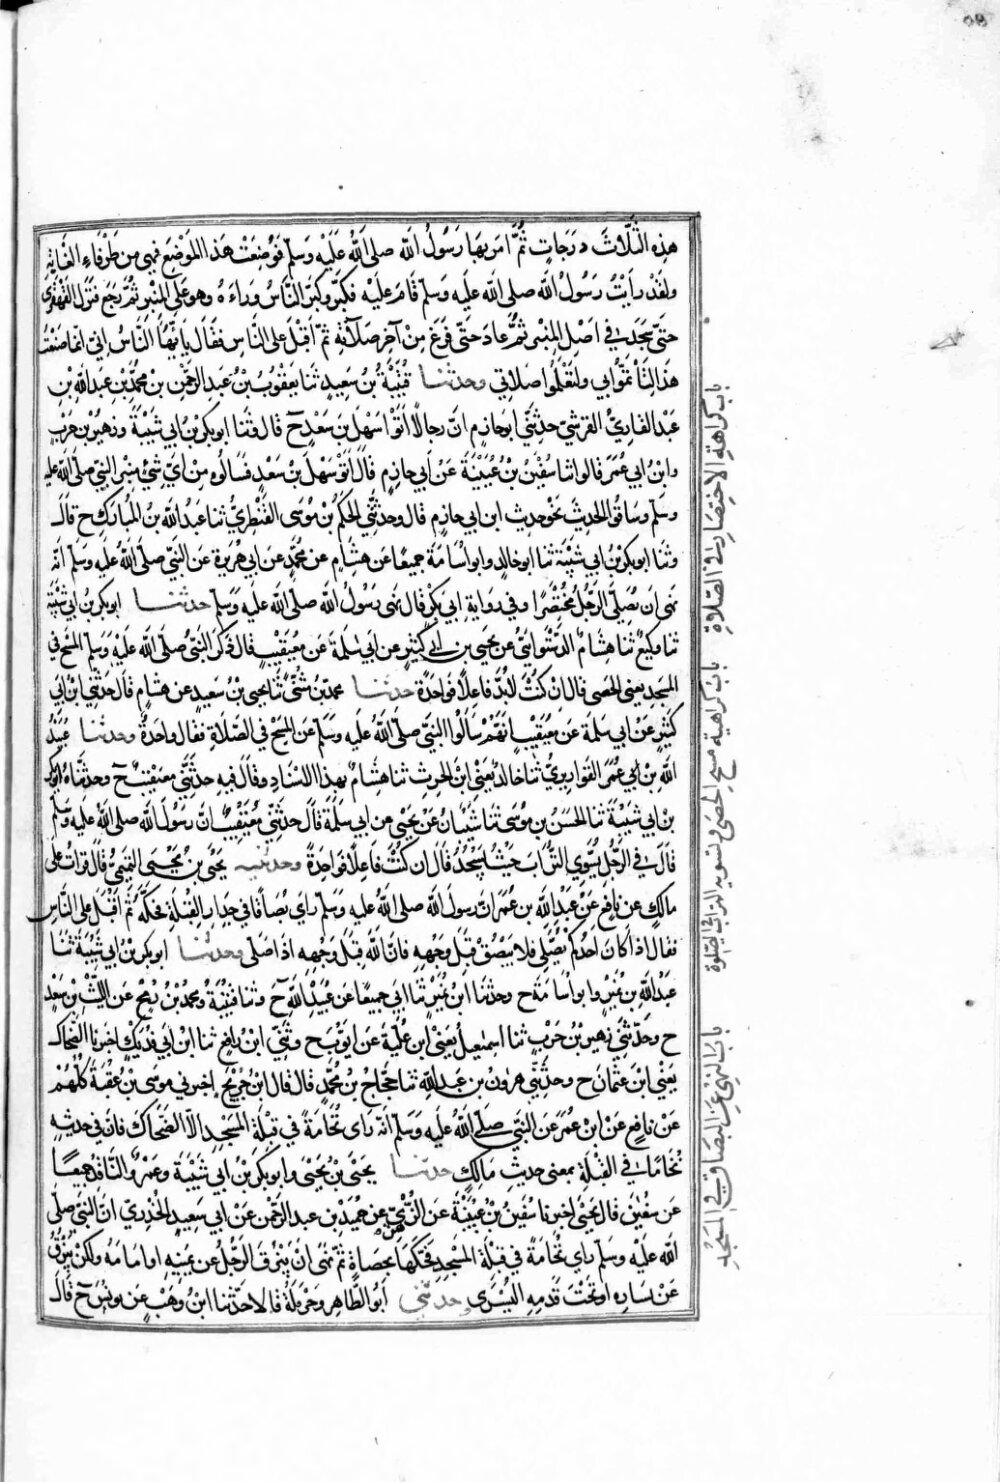 هذه الثلاث درجات ثم امر بها رسول الله صلى الله عليه وسلم فوضعت هذا الموضع فهى من طرفاء الغابة
ولقد رايت رسول الله صلى الله عليه وسلم قام عليه فكبر وكبر الناس وراءه وهو على المنبر ثم رجع فنزل القهقرى
حتى سجد فى اصل المنبر ثم عاد حتى فرغ من آخر صلاته ثم اقبل على الناس فقال يا ايها الناس انى انما صنعت
هذا لتاتموا بي ولتعلموا صلاتي وحدثنا قتيبة بن سعيد ثنا يعقوب بن عبد الرحمن بن محمد بن عبد الله بن
عبد القاري القرشي حدثني ابو حازم ان رجالا اتوا سهل بن سعد ح قال وثنا ابو بكر بن ابي شيبة وزهير بن حرب
وابن ابي عمر قالوا ثنا سفين بن عيينة عن ابي حازم قال اتوا سهل بن سعد فسالوه من اي شئ منبر النبي صلى الله عليه
وسلم وساقوا الحديث نحو حديث ابن ابي حازم قال وحدثني الحكم بن موسى القنطري ثنا عبد الله بن المبارك ح قال
وثنا ابو بكر بن ابي شيبة ثنا ابو خالد وابو اسامة جميعا عن هشام عن محمد عن ابي هريرة عن النبي صلى الله عليه وسلم انه
نهى ان يصلي الرجل مختصرا وفي رواية ابي بكر قال نهى رسول الله صلى الله عليه وسلم حدثنا ابو بكر بن ابي شيبة
ثنا وكيع ثنا هشام الدستوائي عن يحيى بن ابي كثير عن ابي سلمة عن معيقيب قال ذكر النبي صلى الله عليه وسلم المسح في
المسجد يعني الحصى قال ان كنت لابد فاعلا فواحدة حدثنا محمد بن مثنى ثنا يحيى بن سعيد عن هشام قال حدثني ابن ابي
كثير عن ابي سلمة عن معيقيب انهم سالوا النبي صلى الله عليه وسلم عن المسح في الصلاة فقال واحدة وحدثنا عبيد
الله بن ابي عمر القواريري ثنا خالد يعني ابن الحرث ثنا هشام بهذا الاسناد وقال فيه حدثني معيقيب ح وحدثناه ابو بكر
بن ابي شيبة ثنا الحسن بن موسى ثنا شيبان عن يحيى عن ابي سلمة قال حدثني معيقيب ان رسول الله صلى الله عليه وسلم
قال في الرجل يسوي التراب حيث يسجد قال ان كنت فاعلا فواحدة وحدثنا يحيى بن يحيى التميمي قال قرات على
مالك عن نافع عن عبد الله بن عمر ان رسول الله صلى الله عليه وسلم راى بصاقا في جدار القبلة فحكه ثم اقبل على الناس
فقال اذا كان احدكم يصلي فلا يبصق قبل وجهه فان الله قبل وجهه اذا صلى وحدثنا ابو بكر بن ابي شيبة ثنا
عبد الله بن نمير وابو اسامة ح وحدثنا ابن نمير ثنا ابي جميعا عن عبيد الله ح وثنا قتيبة ومحمد بن رمح عن الليث بن سعد
ح وحدثني زهير بن حرب ثنا اسمعيل يعني ابن علية عن ايوب ح وثني ابن رافع ثنا ابن ابي فديك اخبرنا الضحاك
يعني ابن عثمان ح وحدثني هرون بن عبد الله ثنا حجاج بن محمد قال قال ابن جريج اخبرني موسى بن عقبة كلهم
عن نافع عن ابن عمر عن النبي صلى الله عليه وسلم انه راى نخامة في قبلة المسجد الا الضحاك فان في حديثه
نخامة في القبلة بمعنى حديث مالك حدثنا يحيى بن يحيى وابو بكر بن ابي شيبة وعمرو الناقد جميعا
عن سفين قال يحيى اخبرنا سفين بن عيينة عن الزهري عن حميد بن عبد الرحمن عن ابي سعيد الخدري ان النبي صلى
الله عليه وسلم راى نخامة في قبلة المسجد فحكها بحصاة ثم نهى ان يبزق الرجل عن يمينه او امامه ولكن يبزق
عن يساره او تحت قدمه اليسرى وحدثني ابو الطاهر وحرملة قالا حدثنا ابن وهب عن يونس ح قال
باب كراهة الاختصار فى الصلاة
باب كراهية مسح الحصى وتسوية التراب فى الصلوة
باب النهى عن البصاق فى المسجد